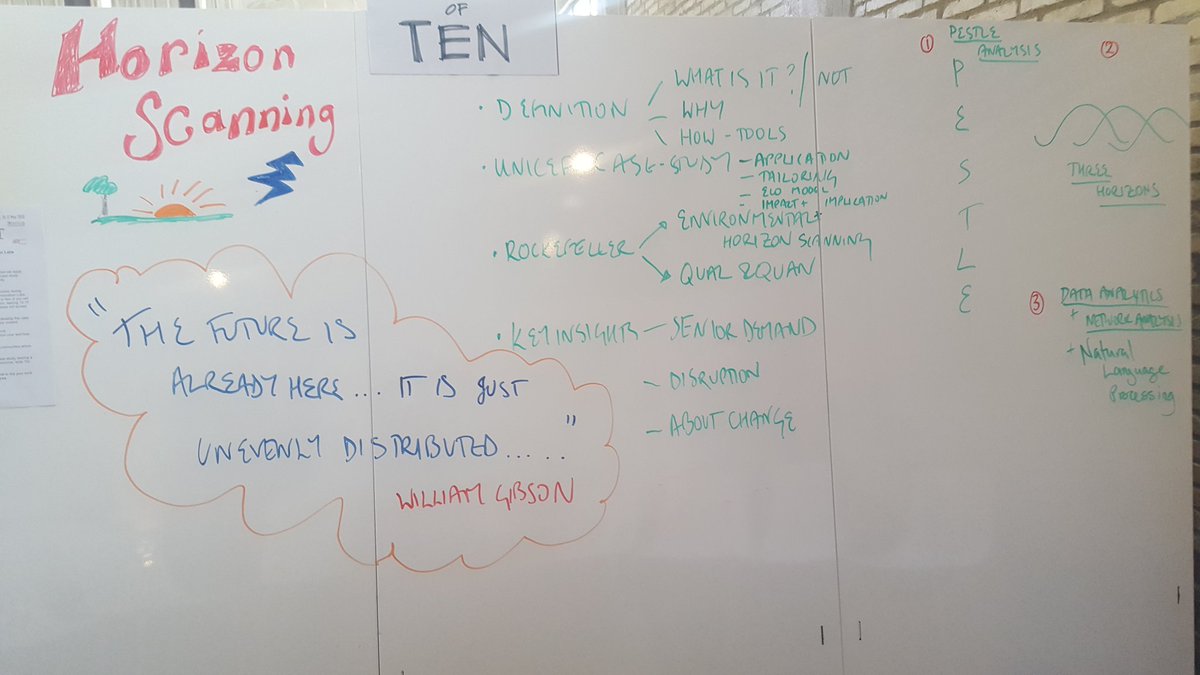 Horizon
Scanning
OF
TEN
"THE FUTURE IS
ALREADY HERE... IT IS JUST
UNEVENLY DISTRIBUTED....."
WILLIAM GIBSON
• DEFINITION
WHAT IS IT?/NOT
WHY
HOW - TOOLS
• UNICEF CASE-STUDY
- APPLICATION
- TAILORING
- ECO MODEL
- IMPACT + IMPLICATION
• ROCKEFELLER
ENVIRONMENTAL +
HORIZON SCANNING
QUAL & QUAN
• KEY INSIGHTS - SENIOR DEMAND
- DISRUPTION
- ABOUT CHANGE
① PESTLE
ANALYSIS
P
E
S
T
L
E
②
THREE
HORIZONS
③ DATA ANALYTICS
+ NETWORK ANALYSIS
+ Natural
Language
Processing